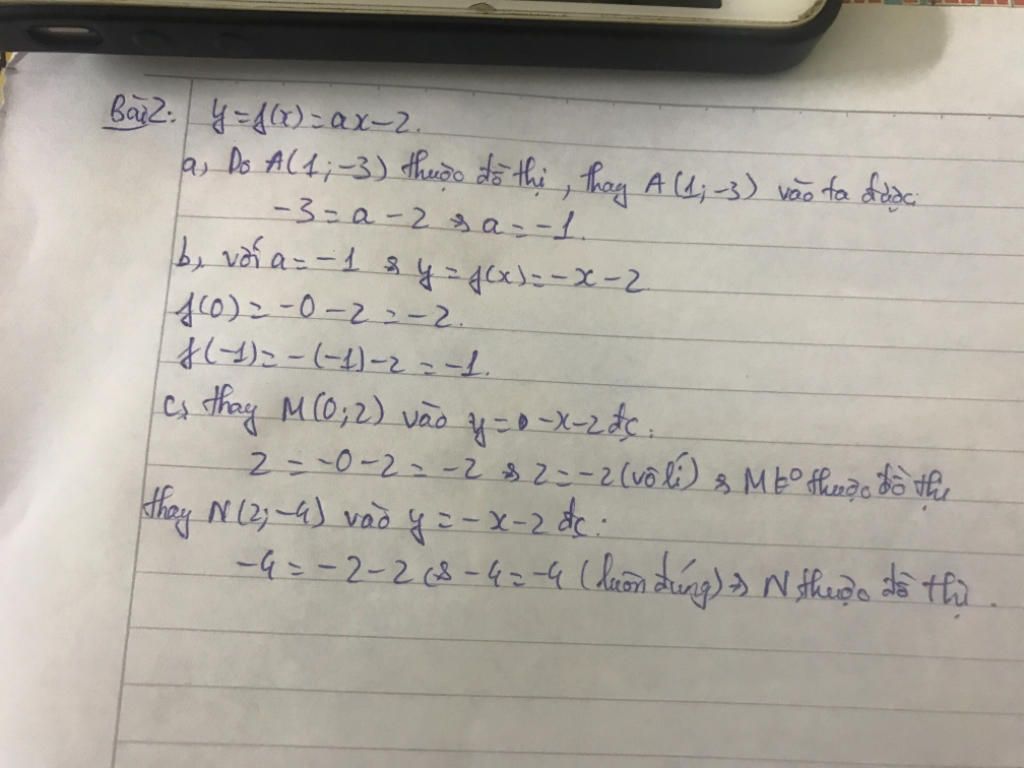 Bài 2: y = f(x) = ax - 2.
a, Do A(1; -3) thuộc đồ thị, thay A(1; -3) vào ta được:
-3 = a - 2 ⇒ a = -1.
b, với a = -1 ⇒ y = f(x) = -x - 2
f(0) = -0 - 2 = -2.
f(-1) = -(-1) - 2 = -1.
c, thay M(0; 2) vào y = -x - 2 đc:
2 = -0 - 2 = -2 ⇒ 2 = -2 (vô lí) ⇒ M k° thuộc đồ thị
thay N(2; -4) vào y = -x - 2 đc:
-4 = -2 - 2 ⇔ -4 = -4 (luôn đúng) ⇒ N thuộc đồ thị.